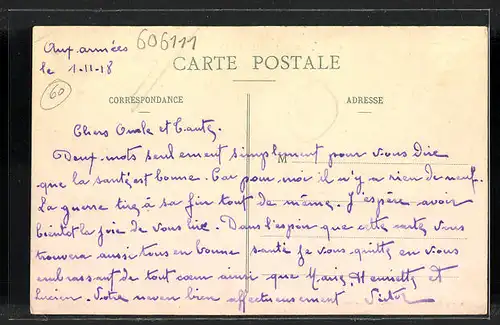 Aux armées
le 1-11-18
606111
60
CARTE POSTALE
CORRESPONDANCE
ADRESSE
M
Chers Oncle et Tante,
Deux mots seulement simplement pour vous dire
que la santé est bonne. Car pour moi il n'y a rien de neuf.
La guerre tire à sa fin tout de même. J'espère avoir
bientôt la joie de vous lire. Dans l'espoir que cette carte vous
trouvera aussi tous en bonne santé je vous quitte en vous
embrassant de tout cœur ainsi que Marie, Henriette et
Lucien. Votre neveu bien affectueusement Victor